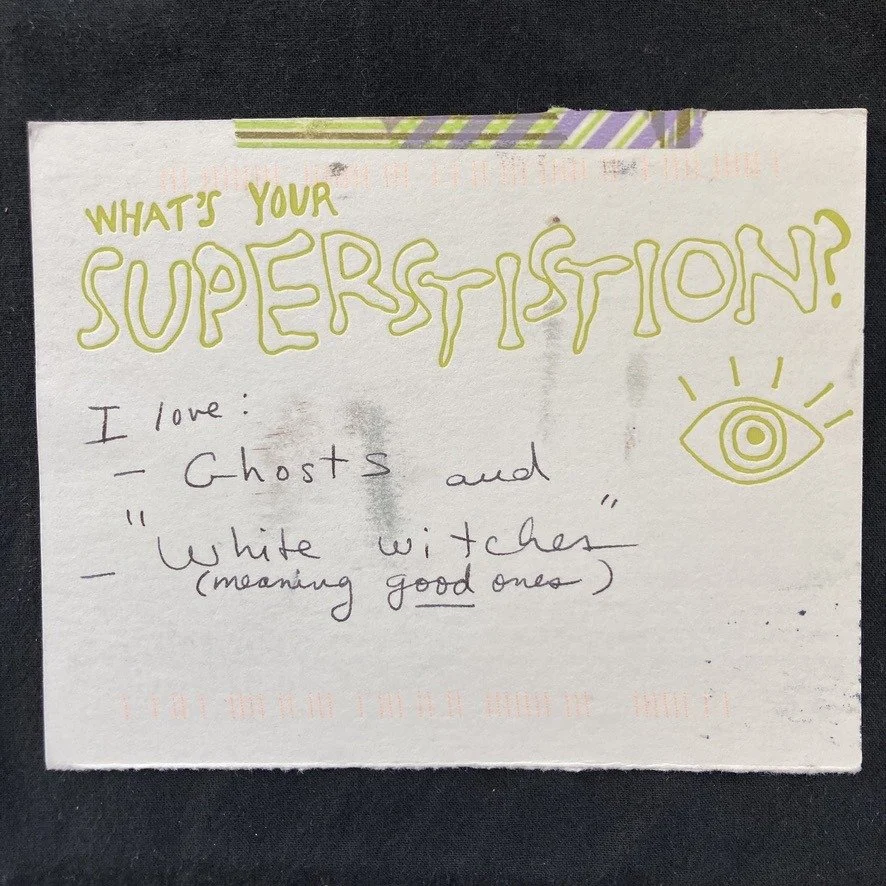 WHAT'S YOUR
SUPERSTISTION?
I love:
- Ghosts and
"White witches"
- (meaning good ones)